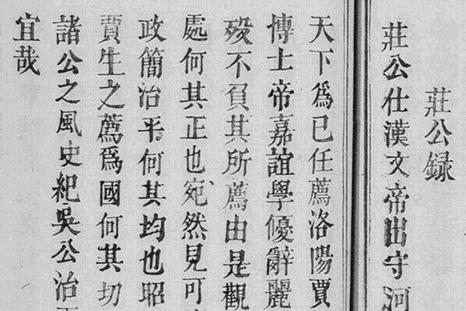 莊公録
莊公仕漢文帝出守河
天下為已任薦洛陽賈
博士帝嘉誼學優辭麗
殁不負其所薦由是觀
處何其正也宛然見可
政簡治平何其均也昭
賈生之薦爲國何其切
諸公之風史紀吳公治
宜哉